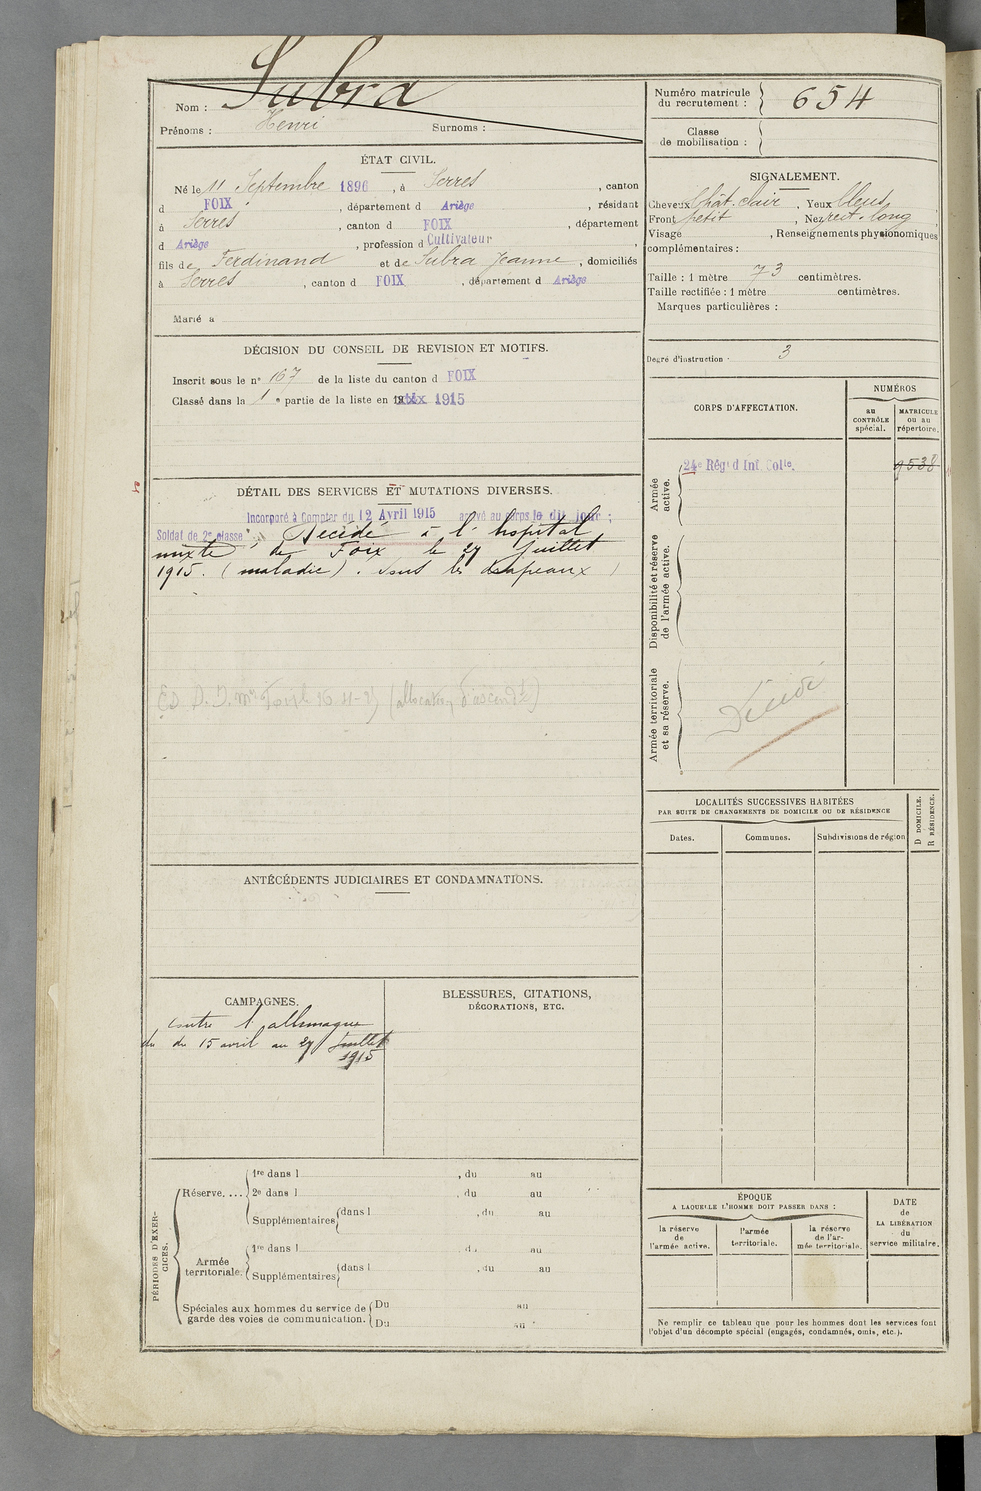 Nom : Subra
Prénoms : Henri Surnoms :
Numéro matricule du recrutement : 654
Classe de mobilisation :
ÉTAT CIVIL.
Né le 11 Septembre 1896, à Serres, canton
d FOIX, département d Ariège, résidant
à Serres, canton d FOIX, département
d Ariège, profession d Cultivateur
fils de Ferdinand et de Subra Jeanne, domiciliés
à Serres, canton d FOIX, département d Ariège
Marié à
SIGNALEMENT.
Cheveux chât. clair, Yeux bleus
Front petit, Nez rect. long
Visage , Renseignements physionomiques
complémentaires :
Taille : 1 mètre 73 centimètres.
Taille rectifiée : 1 mètre centimètres.
Marques particulières :
Degré d'instruction : 3
DÉCISION DU CONSEIL DE REVISION ET MOTIFS.
Inscrit sous le n° 167 de la liste du canton d FOIX
Classé dans la 1e partie de la liste en 1915
CORPS D'AFFECTATION.
NUMÉROS
au CONTRÔLE spécial.
MATRICULE ou au répertoire.
Armée active.
24e Régt d Inf. Colle.
9538
Disponibilité et réserve de l'armée active.
Armée territoriale et sa réserve.
Décédé
DÉTAIL DES SERVICES ET MUTATIONS DIVERSES.
Incorporé à Compter du 12 Avril 1915 arrivé au corps le dit jour ;
Soldat de 2e classe Décédé à l'hôpital
mixte de Foix le 27 juillet
1915. (maladie). sous les drapeaux
LOCALITÉS SUCCESSIVES HABITÉES
PAR SUITE DE CHANGEMENTS DE DOMICILE OU DE RÉSIDENCE
Dates.
Communes.
Subdivisions de région
D DOMICILE.
R RÉSIDENCE.
ANTÉCÉDENTS JUDICIAIRES ET CONDAMNATIONS.
CAMPAGNES.
contre l'allemagne
du 15 avril au 27 Juillet
1915
BLESSURES, CITATIONS,
DÉCORATIONS, ETC.
PÉRIODES D'EXERCICES.
Réserve....
1re dans l , du au
2e dans l , du au
Supplémentaires dans l , du au
Armée territoriale.
1re dans l , du au
Supplémentaires dans l , du au
Spéciales aux hommes du service de garde des voies de communication.
Du au
Du au
ÉPOQUE
A LAQUELLE L'HOMME DOIT PASSER DANS :
la réserve de l'armée active.
l'armée territoriale.
la réserve de l'armée territoriale.
DATE de LA LIBÉRATION du service militaire.
Ne remplir ce tableau que pour les hommes dont les services font
l'objet d'un décompte spécial (engagés, condamnés, omis, etc.).